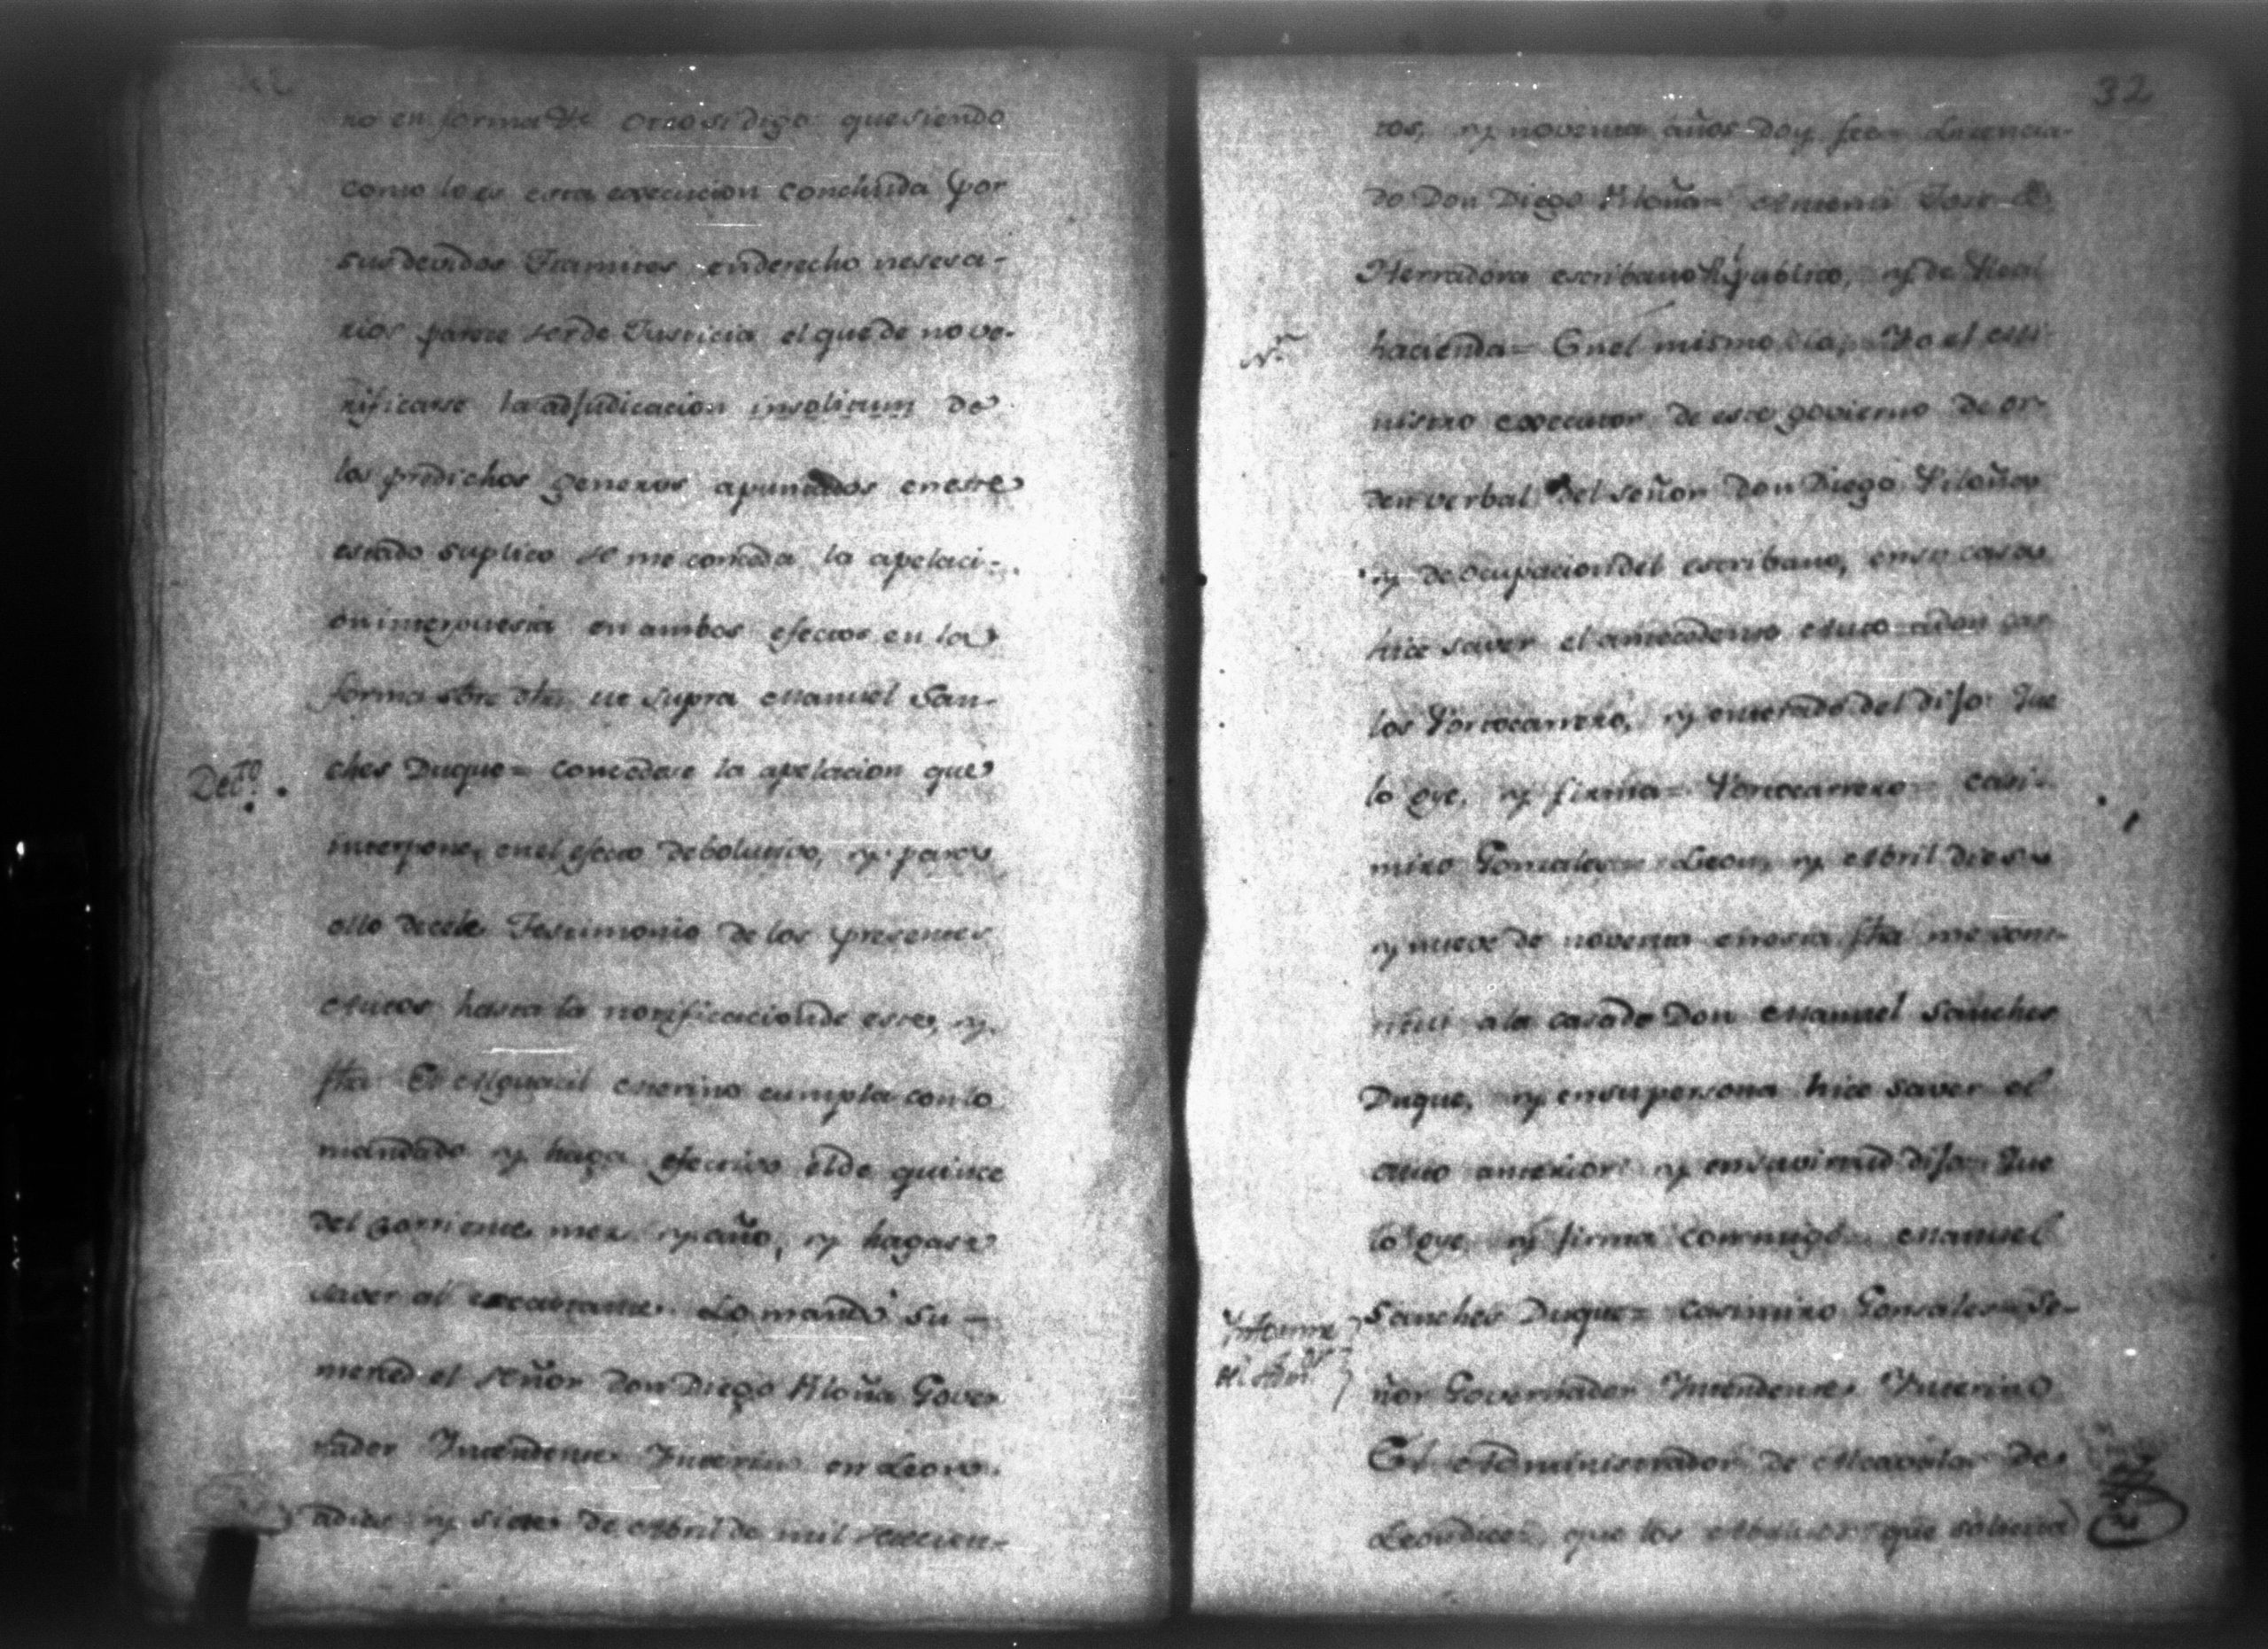 ro en forma &c. Otro si digo: que siendo
como lo es esta execucion concluida por
sus devidos Tramites, en derecho nesesa-
rios parece ser de Justicia el que de no ve-
rificarse la adjudicacion insolitum de
los predichos generos apuntados en este
estado suplico se me conceda la apelaci-
on interpuesta en ambos efectos en la
forma ut supra Manuel San-
ches Duque= Concedase la apelacion que
Dec.to
interpone, en el efecto debolutivo, y para
ello decele Testimonio de los presentes
Autos hasta la notificacion de este, y
fho El Alguacil Merino cumpla con lo
mandado y haga efectivo el de quince
del corriente mes y año, y hagase
saver al executante. Lo mandó su
merced el señor don Diego Piloña Gover
nador Yntendente Ynterino en Leon.
a dies y siete de Abril de mil setecien-
32
tos, y noventa años doy fee= Licencia-
do Don Diego Piloña= Antemi Jose de
Herradora escribano Publico, y de Real
N.n
hacienda= En el mismo dia, Yo el mi-
nistro executor de este govierno de or-
den verbal del señor don Diego Piloña
y de ocupacion del escribano, en su casa
hice saver el antecedente Auto a don Car
los Portocarrero, y enterado del dijo: Que
lo oye, y firma= Portocarrero= Casi-
miro Gonzales= Leon, y Abril dies
y nueve de noventa en esta fha me cons-
titui a la casa de Don Manuel Sanches
Duque, y en su persona hice saver el
Auto anterior y en su virtud dijo= Que
lo oye y firma conmigo= Manuel
Sanches Duque= Casimiro Gonsales= Se-
Ynforme
del Adm.or
ñor Governador Yntendente Ynterino
El Administrador de Alcavalas de
Leon dice, que los que solicita